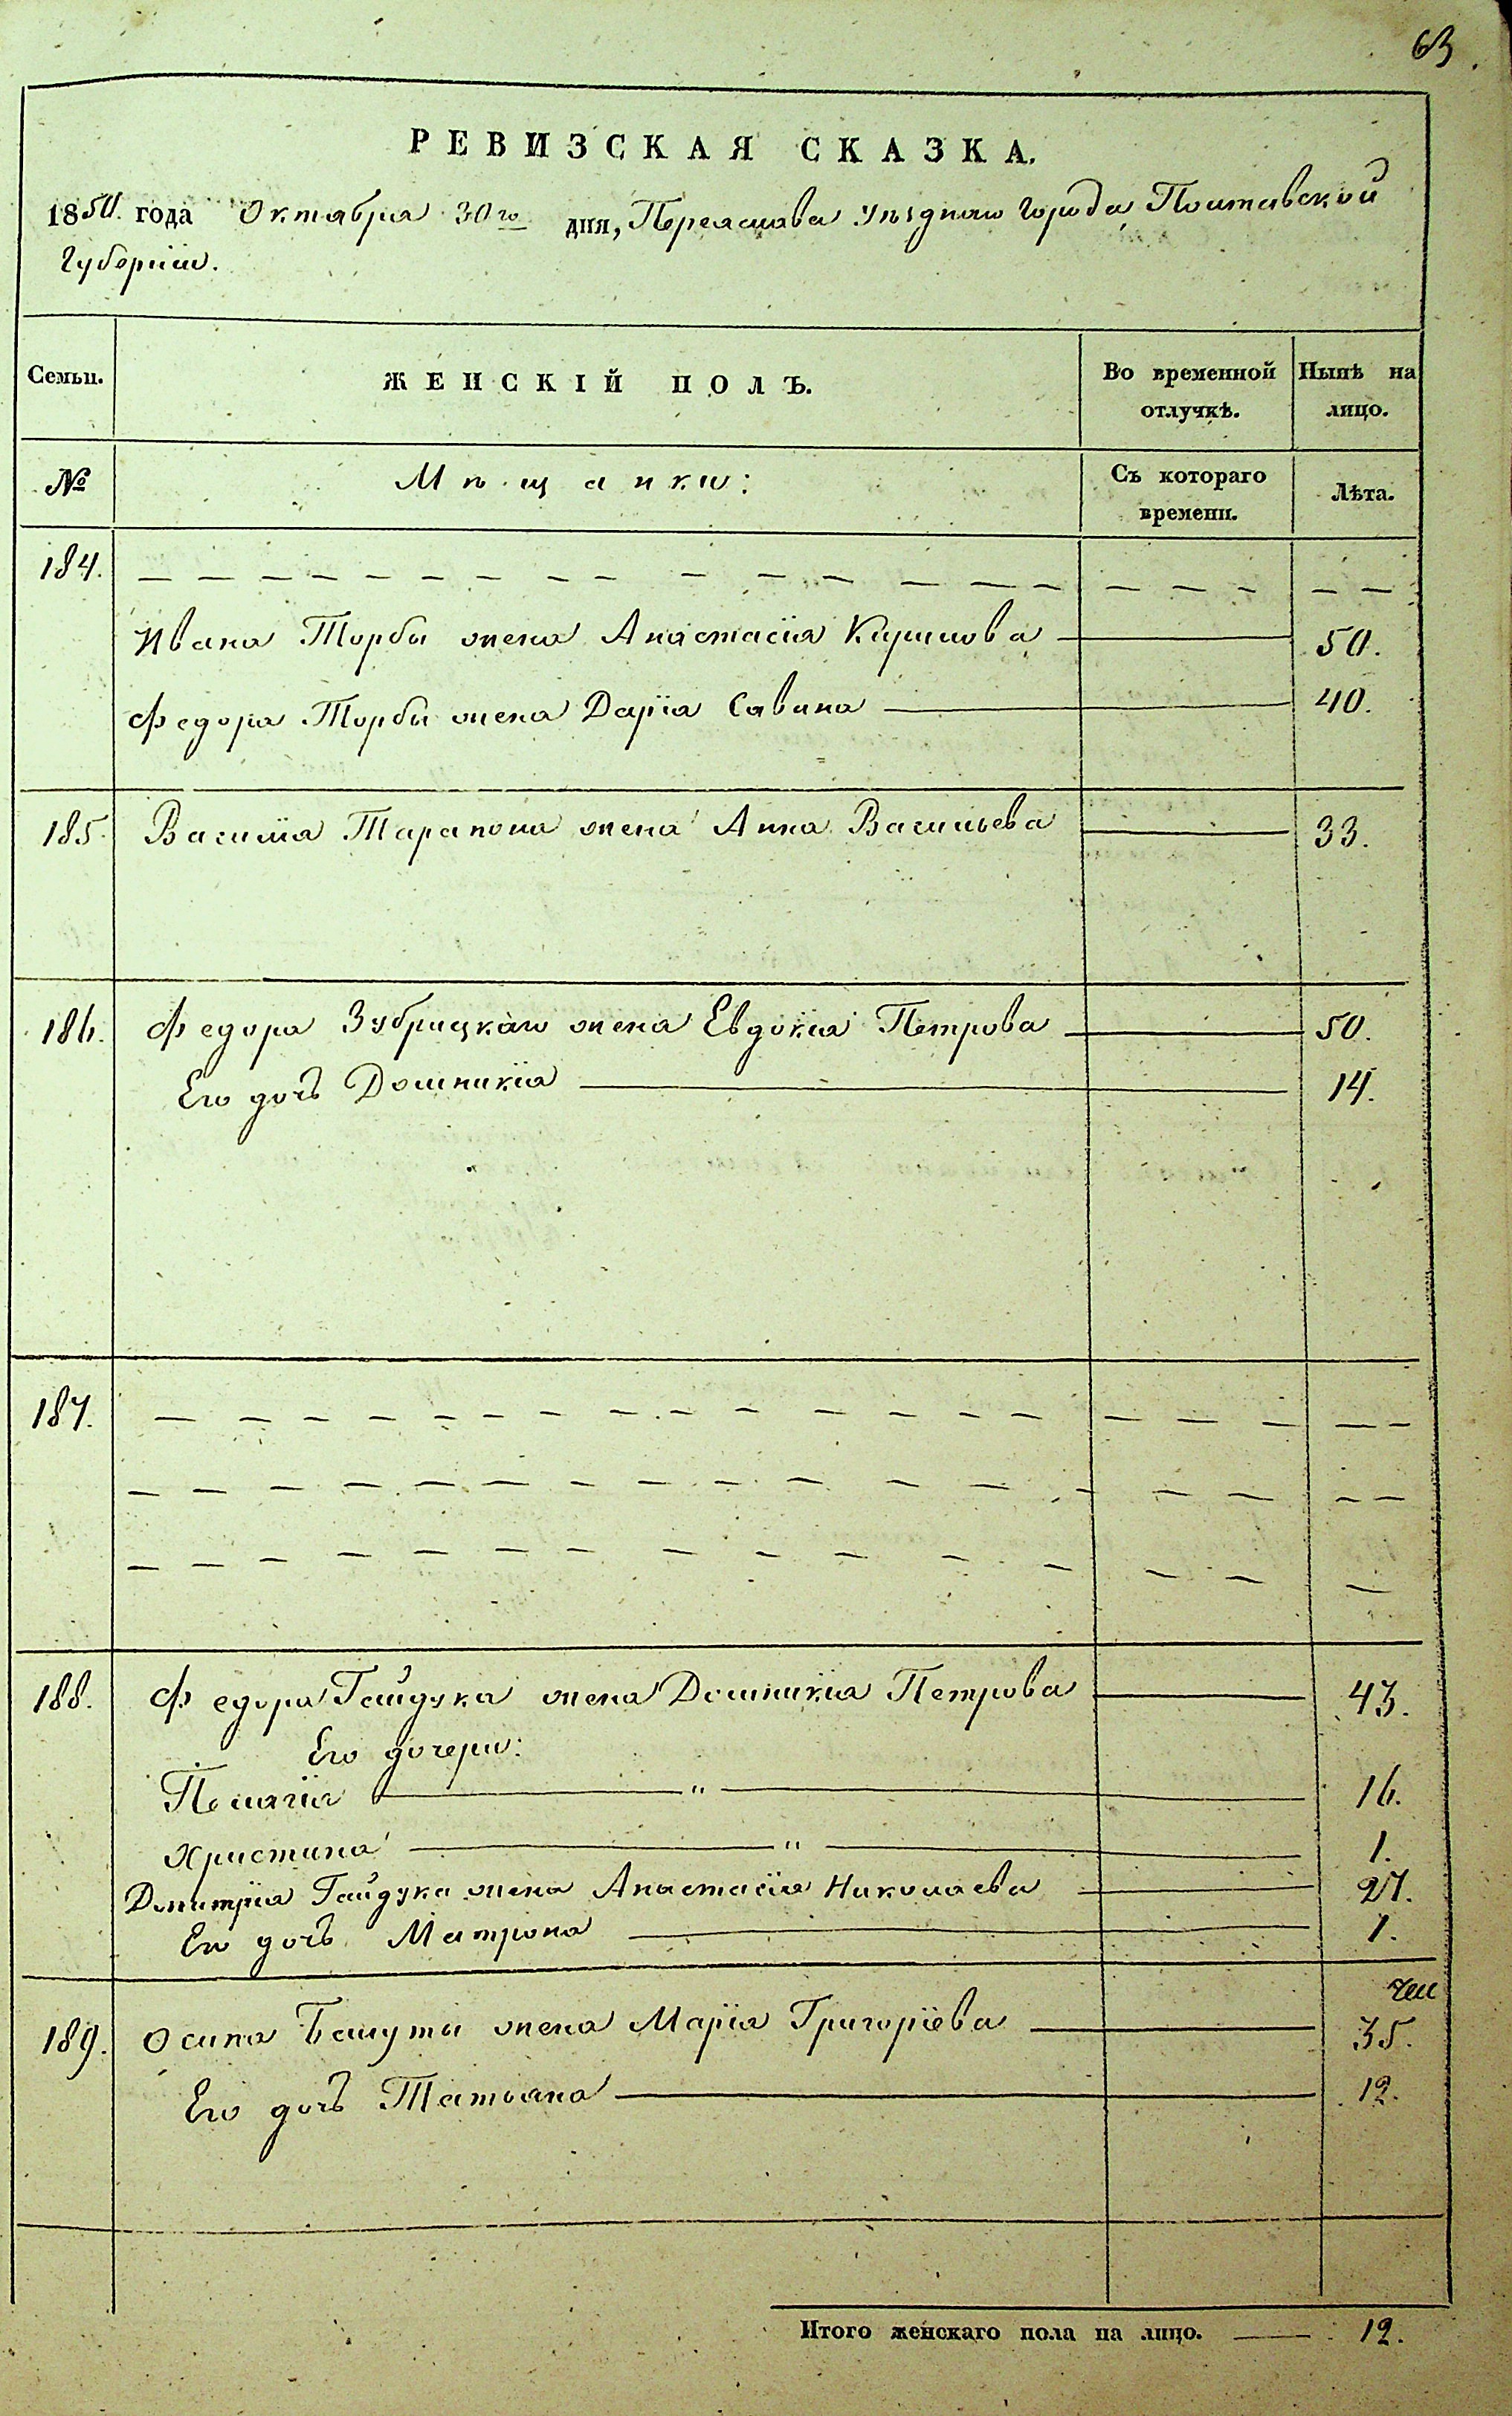 63.
РЕВИЗСКАЯ СКАЗКА.
1850. года Октября 30го дня, Переяслава Уѣзднаго Города Полтавской
Губерніи.
Семьи.
ЖЕНСКІЙ ПОЛЪ.
Во временной отлучкѣ.
Нынѣ на лицо.
№
Мѣщанки:
Съ котораго времени.
Лѣта.
184. — — — — — — — — — — — — — — — — — — — —
Ивана Торбы жена Анастасія Кирилова — 50.
Федора Торбы жена Дарія Савина — 40.
185. Василія Тарапоии жена Анна Васильева — 33.
186. Федора Зубрицкаго жена Евдокія Петрова — 50.
Его дочь Домникія — 14.
187. — — — — — — — — — — — — — — — — — —
— — — — — — — — — — — — — — — — —
— — — — — — — — — — — — — — —
188. Федора Гайдука жена Домникія Петрова — 43.
Его дочери:
Пелагія — " — 16.
Христина — " — 1.
Димитрія Гайдука жена Анастасія Николаева — 27.
Его дочь Матрона — 1.
189. Осипа Башуты жена Марія Григоріева — 35.
Его дочь Татьяна — 12.
Итого женскаго пола на лицо. — 12.